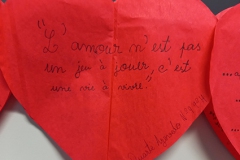 "L'amour n'est pas
un jeu à jouer, c'est
une vie à vivre"